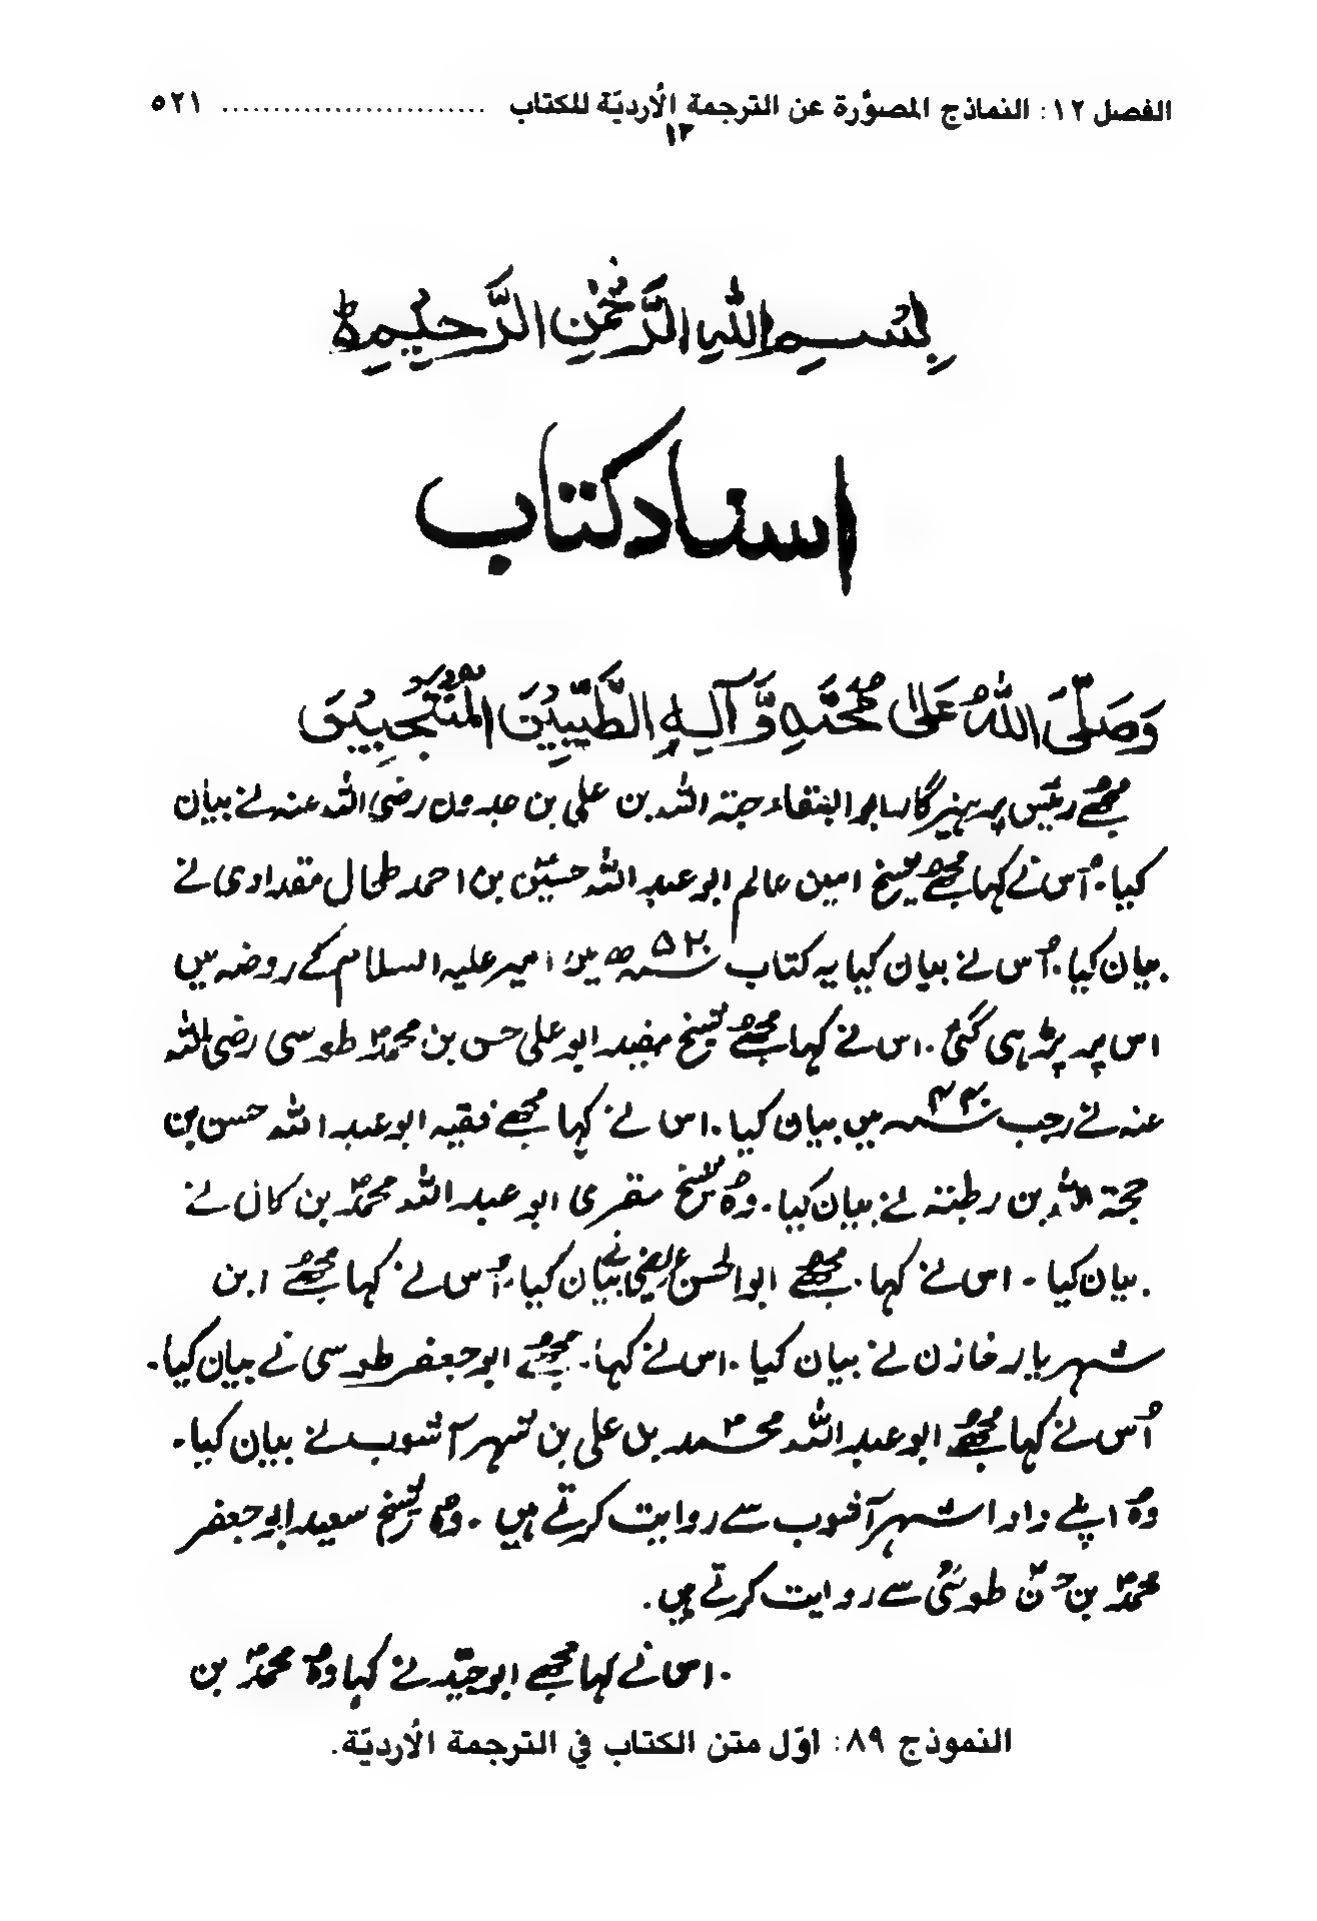 الفصل ١٢: النماذج المصوَّرة عن الترجمة الأُرديّة للكتاب ........................... ٥٢١
١٣
بِسْمِ اللهِ الرَّحْمٰنِ الرَّحِيْمِ ط
اسناد کتاب
وَصَلَّى اللهُ عَلىٰ مُحَمَّدٍ وَّآلِهِ الطَّيِّبِيْنَ الْمُنْتَجَبِيْنَ
مجھے رئیس پرہیزگار ابوالبقاء حبۃ اللہ بن علی بن حدون رضی اللہ عنہ نے بیان
کیا۔ اُس نے کہا مجھے شیخ امین عالم ابو عبد اللہ حسینؑ بن احمد طحال مقدادی نے
بیان کیا۔ اُس نے بیان کیا یہ کتاب ۵۲۰ ؁ھ میں امیر علیہ السلام کے روضہ میں
اس پر پڑھی گئی۔ اس نے کہا مجھے شیخ مفید ابو علی حسن بن محمدؐ طوسی رضی اللہ
عنہ نے رجب ۴۴۰ ؁ میں بیان کیا۔ اس نے کہا مجھے فقیہ ابو عبد اللہ حسن بن
حجۃ اللہ بن رطبتہ نے بیان کیا۔ وہ شیخ مقری ابو عبد اللہ محمدؐ بن کال نے
بیان کیا۔ اس نے کہا۔ مجھے ابوالحسن عریضی نے بیان کیا۔ اُس نے کہا مجھے ابن
شہریار خازن نے بیان کیا۔ اس نے کہا۔ مجھے ابو جعفر طوسی نے بیان کیا۔
اُس نے کہا مجھے ابو عبد اللہ محمد بن علی بن شہر آشوب نے بیان کیا۔
وہ اپنے دادا شہر آشوب سے روایت کرتے ہیں۔ وہ شیخ سعید ابو جعفر
محمدؐ بن حسنؑ طوسیؒ سے روایت کرتے ہیں۔
اس نے کہا مجھے ابو جیّد نے کہا وہ محمدؐ بن
النموذج ٨٩: أوّل متن الكتاب في الترجمة الأُرديّة.